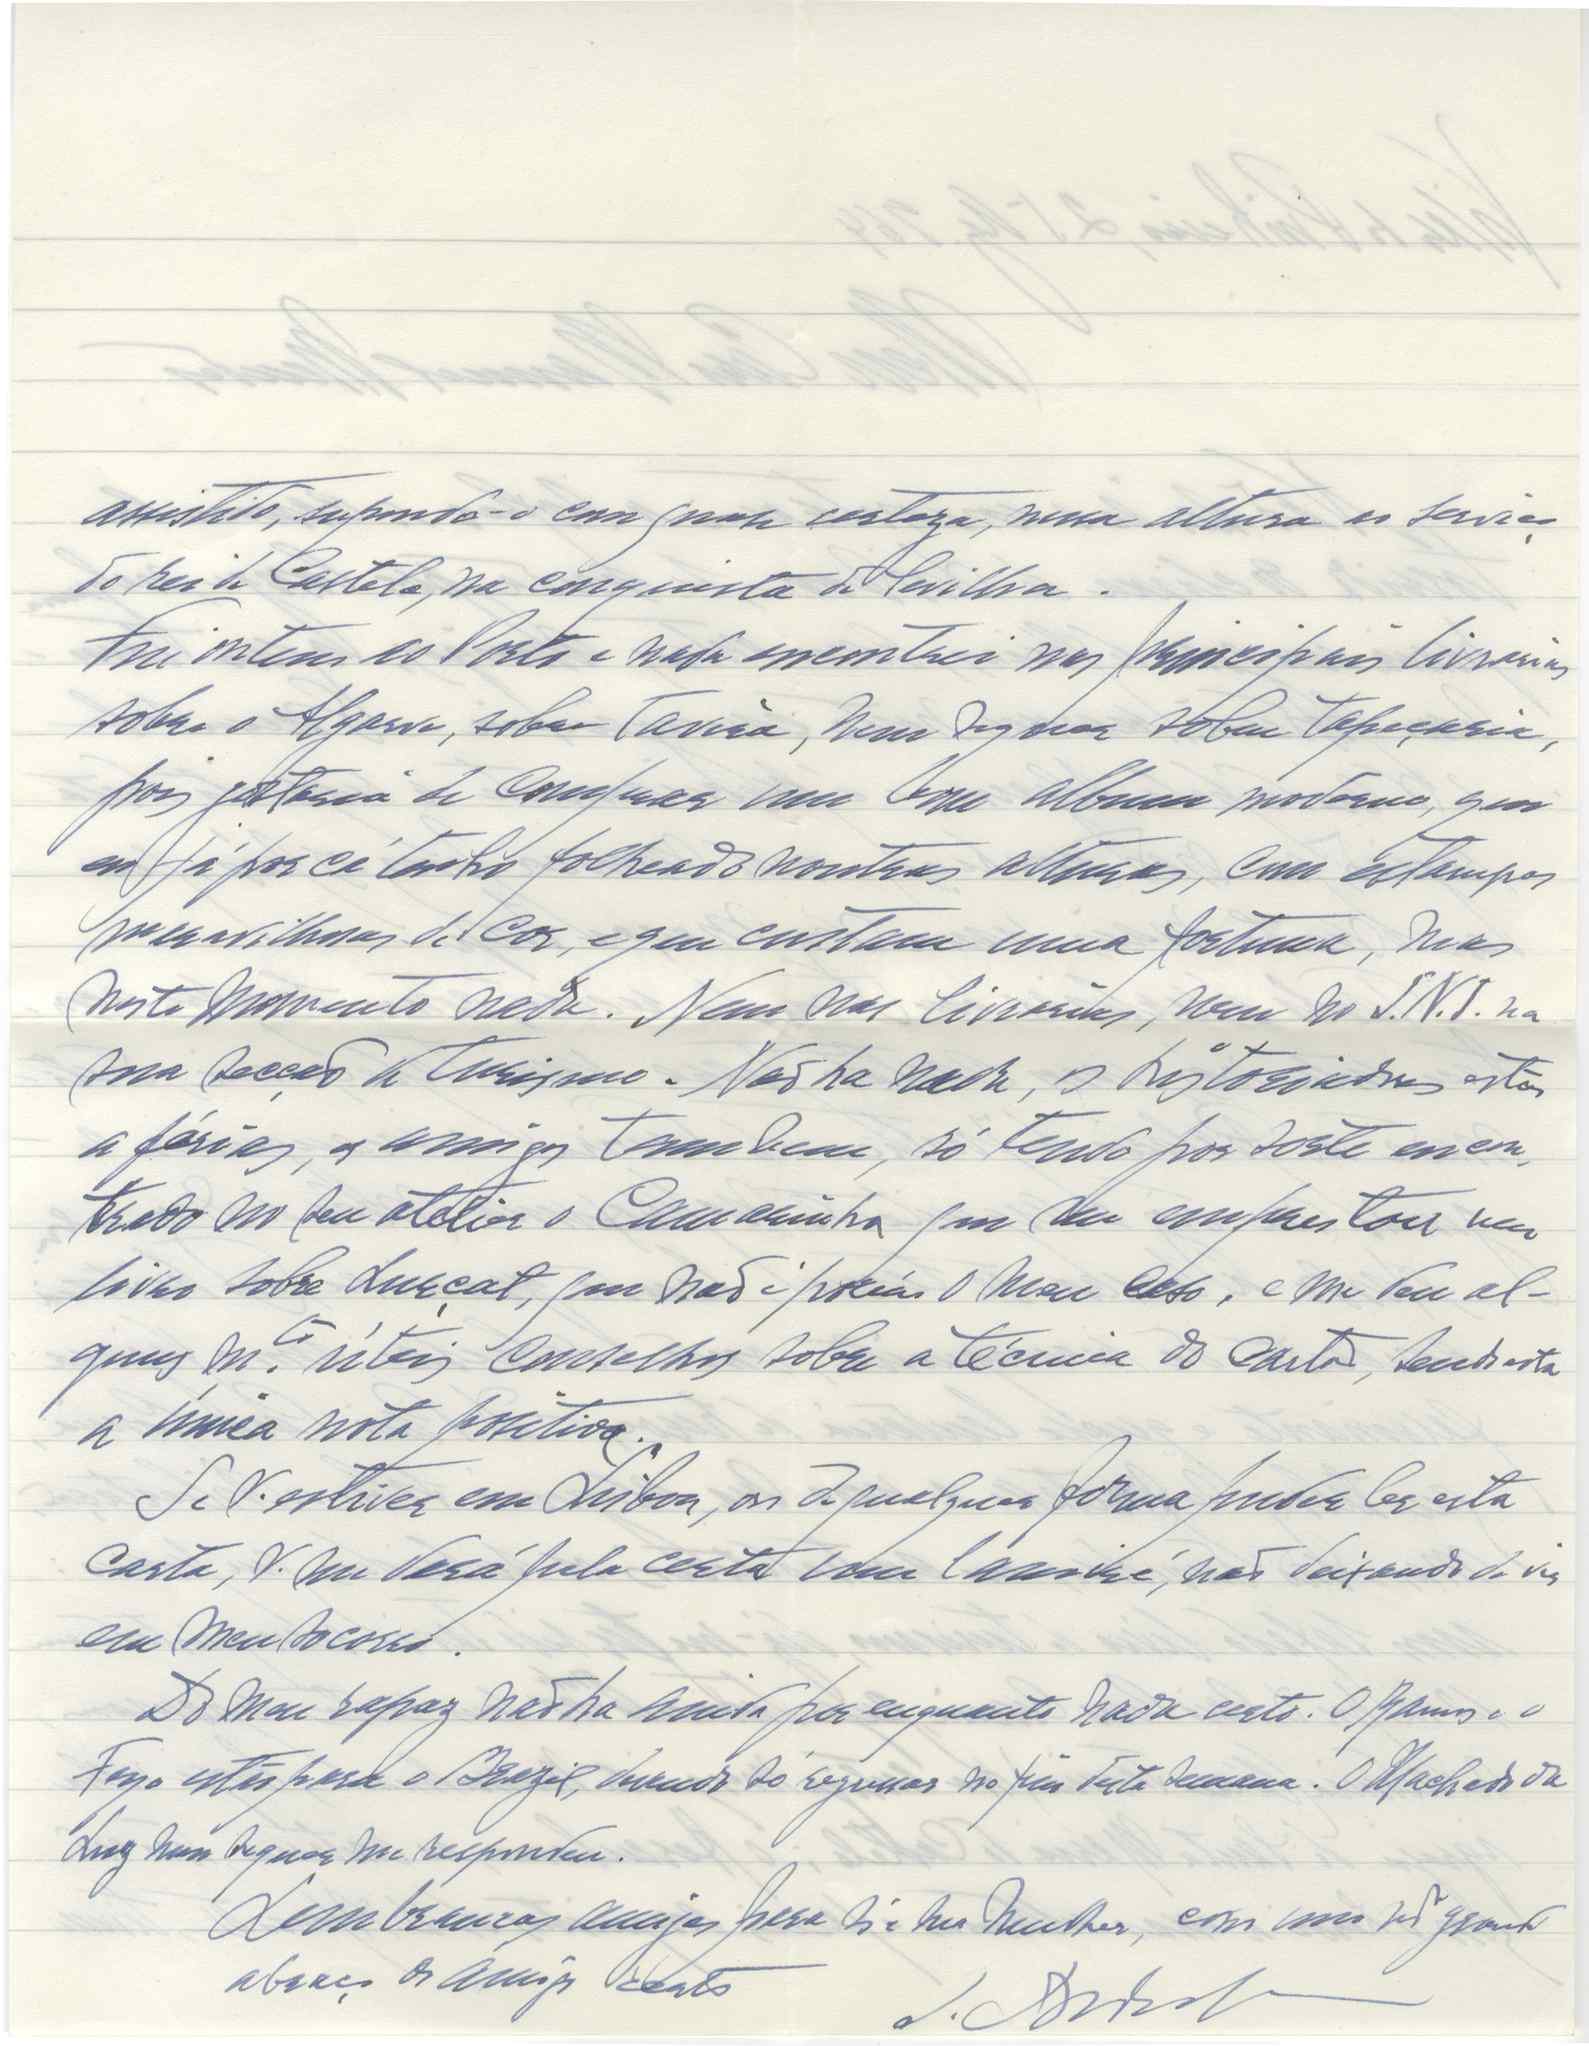 assistido, supondo-o com quase certeza, nessa altura ao serviço
do rei de Castela, na conquista de Sevilha.
Fui ontem ao Porto e nada encontrei nas principais livrarias
sobre o Algarve, sobre Tavira, nem sequer sobre tapeçaria,
pois gostaria de comprar um bom album moderno, que
eu já por cá tenho folheado noutras alturas, com estampas
maravilhosas de cor, e que custam uma fortuna, mas
neste momento nada. Nem nas livrarias, nem no S.N.I. na
sua secção de turismo. Não ha nada, os historiadores estão
a férias, os amigos tambem, só tendo por sorte encon-
trado no seu atelier o Camarinha que me emprestou um
livro sobre Lurçat, que não é porém o meu caso, e me deu al-
guns m.to úteis conselhos sobre a técnica do cartão, sendo esta
a única nota positiva.
Se V. estiver em Lisboa, ou de qualquer forma puder ler esta
carta, V. me dará pela certa um lamiré, não deixando de vir
em meu socorro.
Do meu rapaz não ha ainda por enquanto nada certo. O Ramos e o
Feyo estão para o Brazil, devendo só regressar no fim desta semana. O Machado da
Luz nem sequer me respondeu.
Lembranças amigas para si e sua mulher, com um grande
abraço do amigo certo